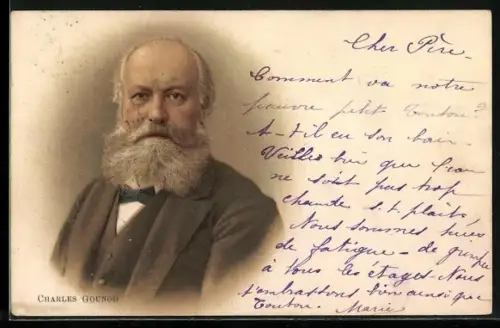 Cher Père
Comment va notre
pauvre petit Toutou?
A-t-il eu son bain.
Veilles bien que l'eau
ne soit pas trop
chaude s.t. plaît,
Nous sommes tuées
de fatigue - de grimper
à tous les étages. Nous
t'embrassons bien ainsi que
Toutou. Marie
CHARLES GOUNOD